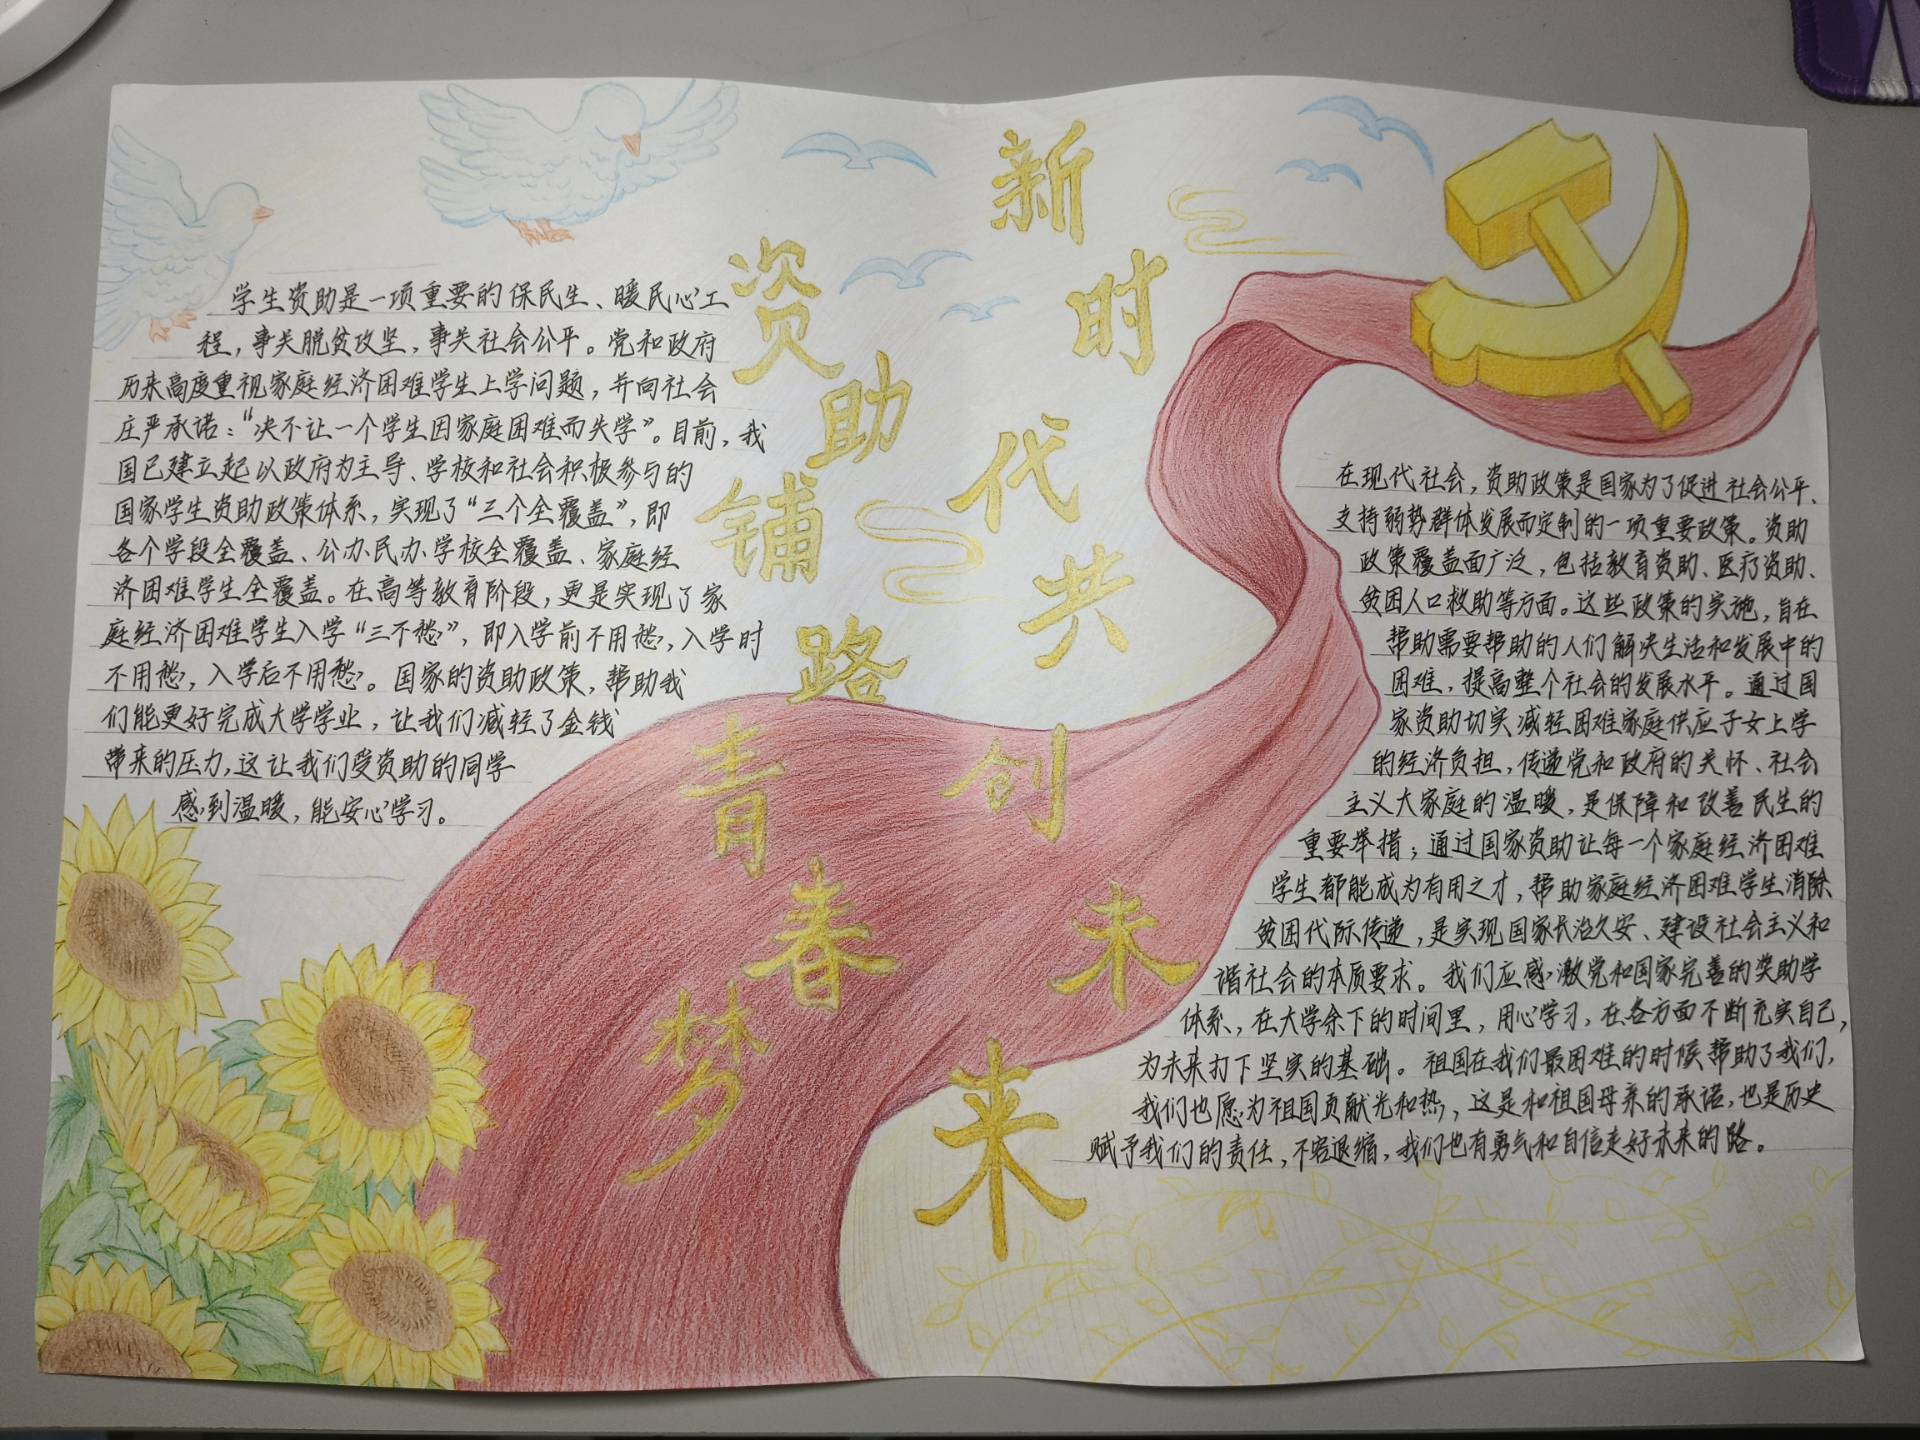 资助铺路青春梦
新时代共创未来
学生资助是一项重要的保民生、暖民心工
程，事关脱贫攻坚，事关社会公平。党和政府
历来高度重视家庭经济困难学生上学问题，并向社会
庄严承诺：“决不让一个学生因家庭困难而失学”。目前，我
国已建立起以政府为主导、学校和社会积极参与的
国家学生资助政策体系，实现了“三个全覆盖”，即
各个学段全覆盖、公办民办学校全覆盖、家庭经
济困难学生全覆盖。在高等教育阶段，更是实现了家
庭经济困难学生入学“三不愁”，即入学前不用愁，入学时
不用愁，入学后不用愁。国家的资助政策，帮助我
们能更好完成大学学业，让我们减轻了金钱
带来的压力，这让我们受资助的同学
感到温暖，能安心学习。
在现代社会，资助政策是国家为了促进社会公平、
支持弱势群体发展而定制的一项重要政策。资助
政策覆盖面广泛，包括教育资助、医疗资助、
贫困人口救助等方面。这些政策的实施，旨在
帮助需要帮助的人们解决生活和发展中的
困难，提高整个社会的发展水平。通过国
家资助切实减轻困难家庭供应子女上学
的经济负担，传递党和政府的关怀、社会
主义大家庭的温暖，是保障和改善民生的
重要举措；通过国家资助让每一个家庭经济困难
学生都能成为有用之才，帮助家庭经济困难学生消除
贫困代际传递，是实现国家长治久安、建设社会主义和
谐社会的本质要求。我们应感激党和国家完善的奖助学
体系，在大学余下的时间里，用心学习，在各方面不断充实自己，
为未来打下坚实的基础。祖国在我们最困难的时候帮助了我们，
我们也愿为祖国贡献光和热，这是和祖国母亲的承诺，也是历史
赋予我们的责任，不容退缩，我们也有勇气和自信走好未来的路。